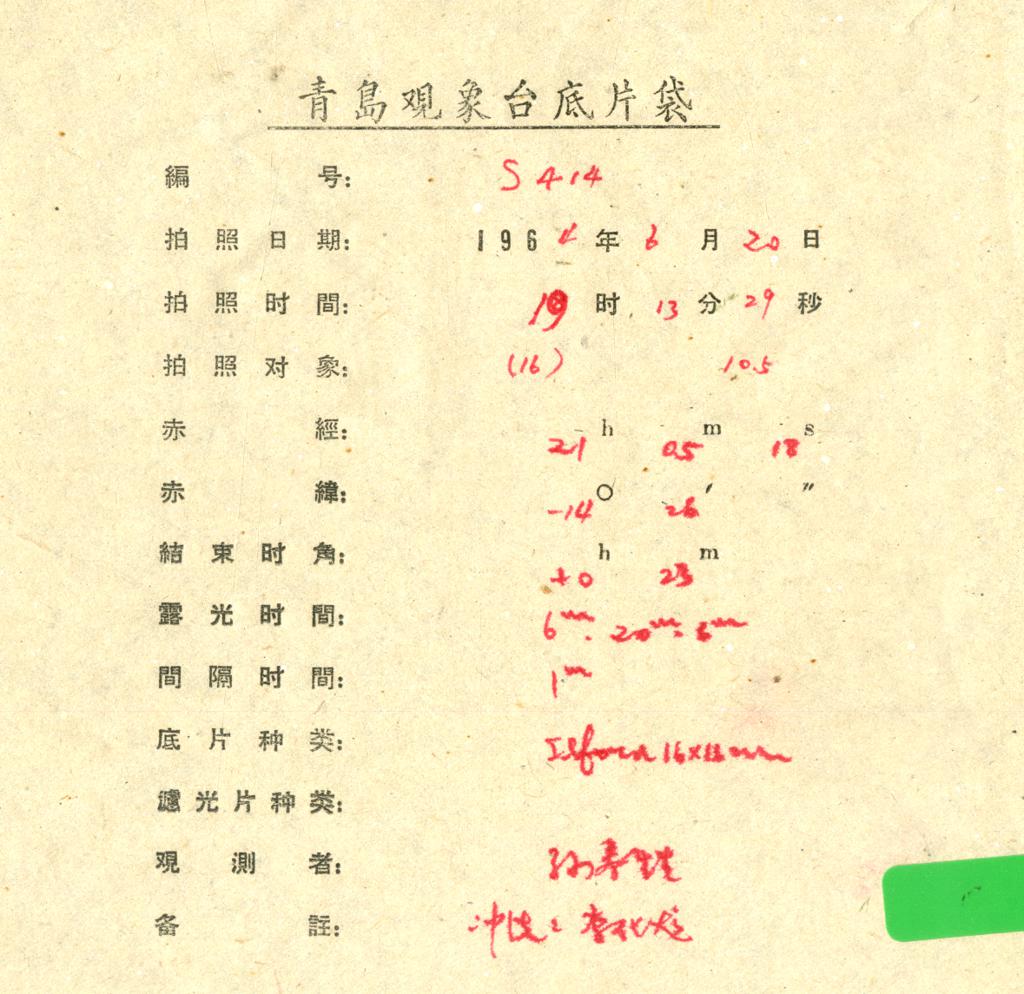 青島观象台底片袋
編号: S 414
拍照日期: 1964年6月20日
拍照时間: 19时13分29秒
拍照对象: (16) 105
赤經: 21h 05m 18s
赤緯: -14° 26′ ″
結束时角: +0h 23m
露光时間: 6m. 20m. 6m
間隔时間: 1m
底片种类: Ilford 16×16
濾光片种类:
观測者: 孙寿
备註: 冲洗: 李